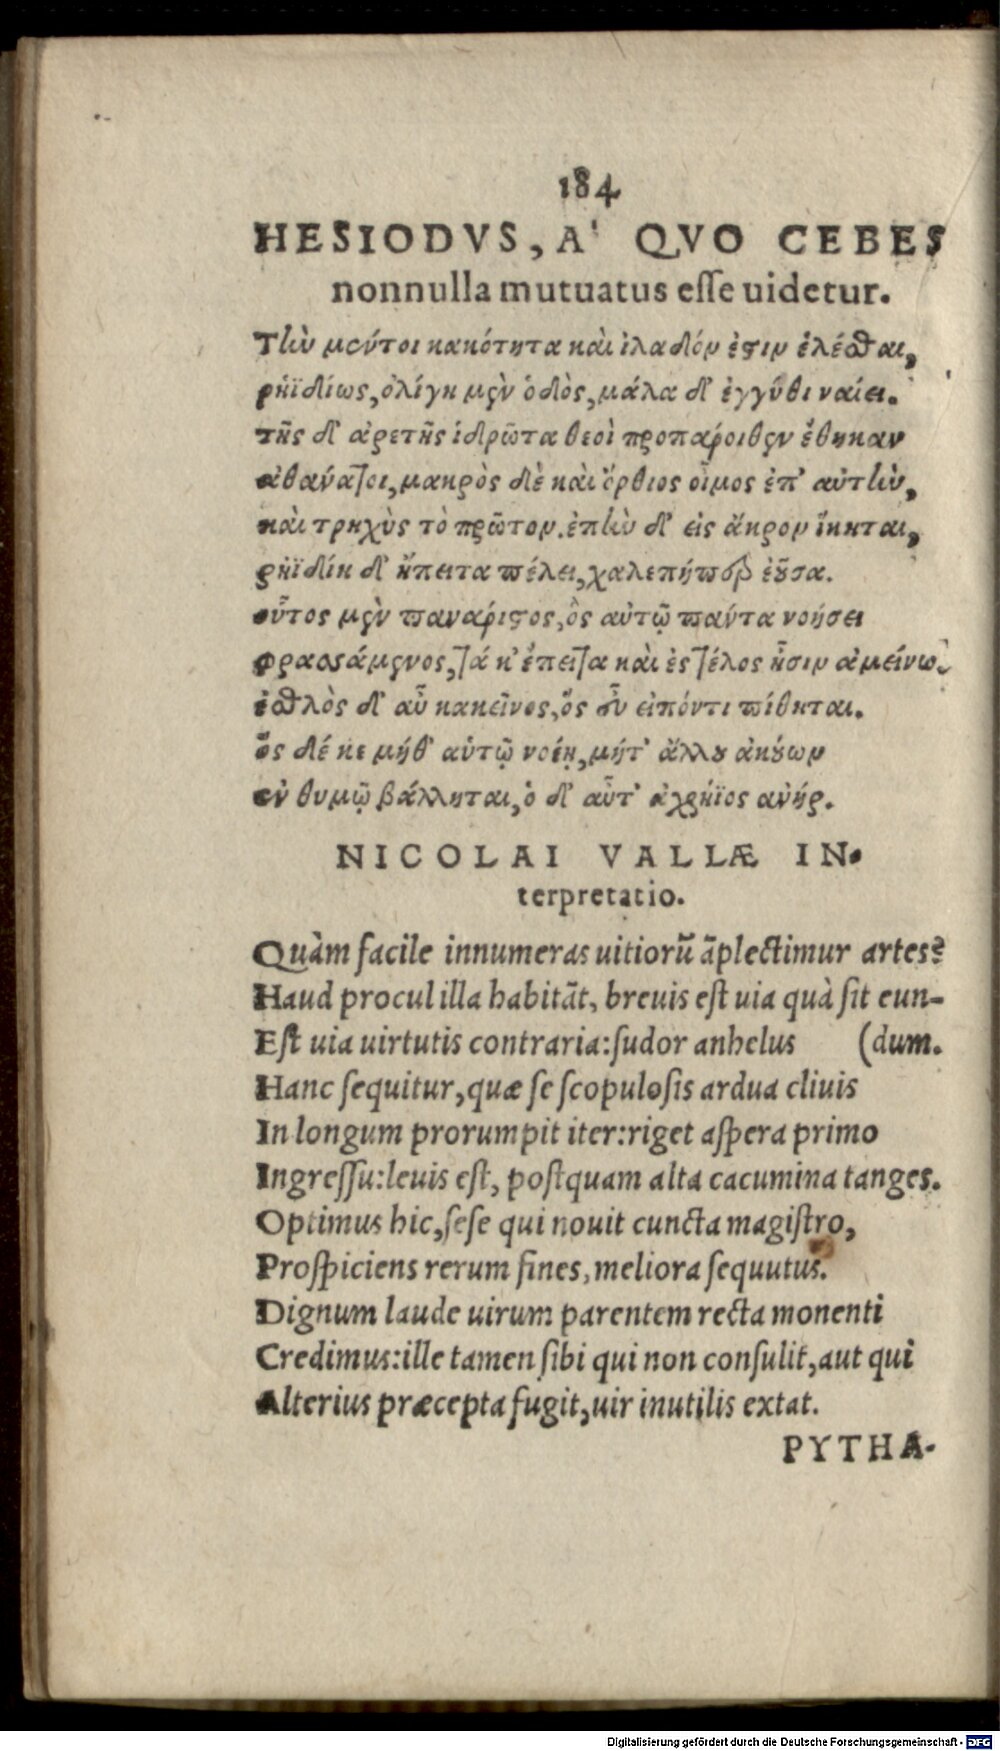 184
HESIODVS, A' QVO CEBES
nonnulla mutuatus esse uidetur.
Τὴν μέντοι κακότητα καὶ ἰλαδόν ἐστιν ἑλέσθαι,
ῥηϊδίως, ὀλίγη μὲν ὁδὸς, μάλα δ' ἐγγύθι ναίει.
τῆς δ' ἀρετῆς ἱδρῶτα θεοὶ προπάροιθεν ἔθηκαν
ἀθάνατοι, μακρὸς δὲ καὶ ὄρθιος οἶμος ἐπ' αὐτὴν,
καὶ τρηχὺς τὸ πρῶτον. ἐπὴν δ' εἰς ἄκρον ἵκηται,
ῥηϊδίη δ' ἤπειτα πέλει, χαλεπήπερ ἐοῦσα.
οὗτος μὲν πανάριστος, ὃς αὐτῷ πάντα νοήσει
φρασσάμενος, τά κ' ἔπειτα καὶ ἐς τέλος ᾖσιν ἀμείνω.
ἐσθλὸς δ' αὖ κακεῖνος, ὅς εὖ εἰπόντι πίθηται.
ὃς δέ κε μήθ' αὑτῷ νοέῃ, μήτ' ἄλλου ἀκούων
ἐν θυμῷ βάλληται, ὁ δ' αὖτ' ἀχρήϊος ἀνήρ.
NICOLAI VALLÆ IN-
terpretatio.
Quàm facile innumeras uitiorū āplectimur artes?
Haud procul illa habitāt, breuis est uia quà sit eun-
Est uia uirtutis contraria: sudor anhelus (dum.
Hanc sequitur, quæ se scopulosis ardua cliuis
In longum prorumpit iter: riget aspera primo
Ingressu: leuis est, postquam alta cacumina tanges.
Optimus hic, sese qui nouit cuncta magistro,
Prospiciens rerum fines, meliora sequutus.
Dignum laude uirum parentem recta monenti
Credimus: ille tamen sibi qui non consulit, aut qui
Alterius præcepta fugit, uir inutilis extat.
PYTHA-
Digitalisierung gefördert durch die Deutsche Forschungsgemeinschaft - DFG